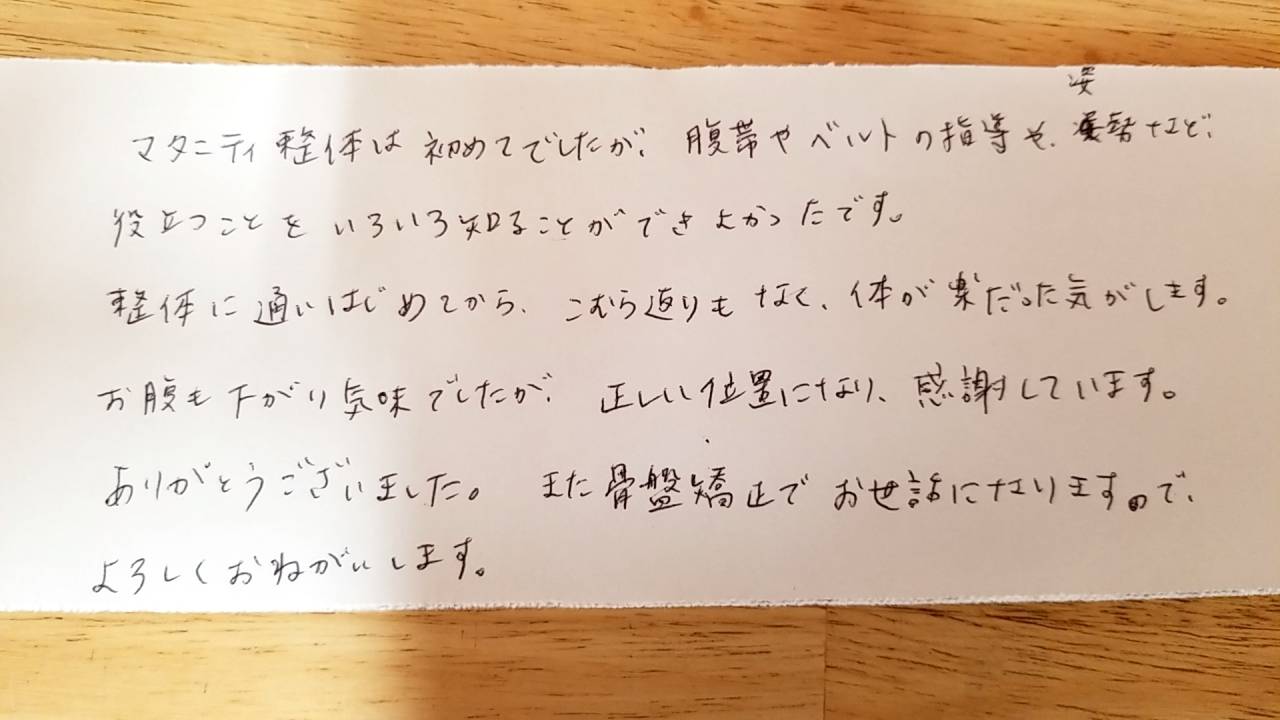 マタニティ整体は初めてでしたが、腹帯やベルトの指導や、姿勢など、
役立つことをいろいろ知ることができよかったです。
整体に通いはじめてから、こむら返りもなく、体が楽だった気がします。
お腹も下がり気味でしたが、正しい位置になり、感謝しています。
ありがとうございました。また骨盤矯正でお世話になりますので、
よろしくおねがいします。